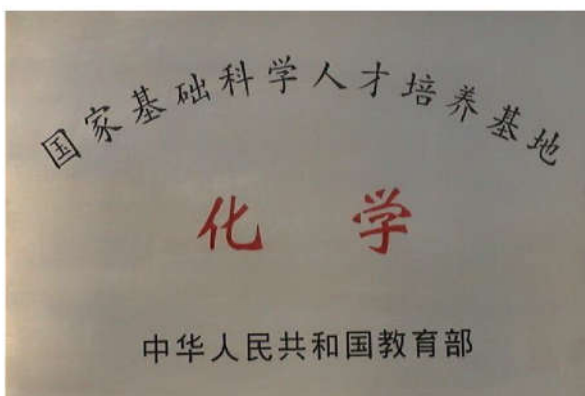 国家基础科学人才培养基地
化学
中华人民共和国教育部